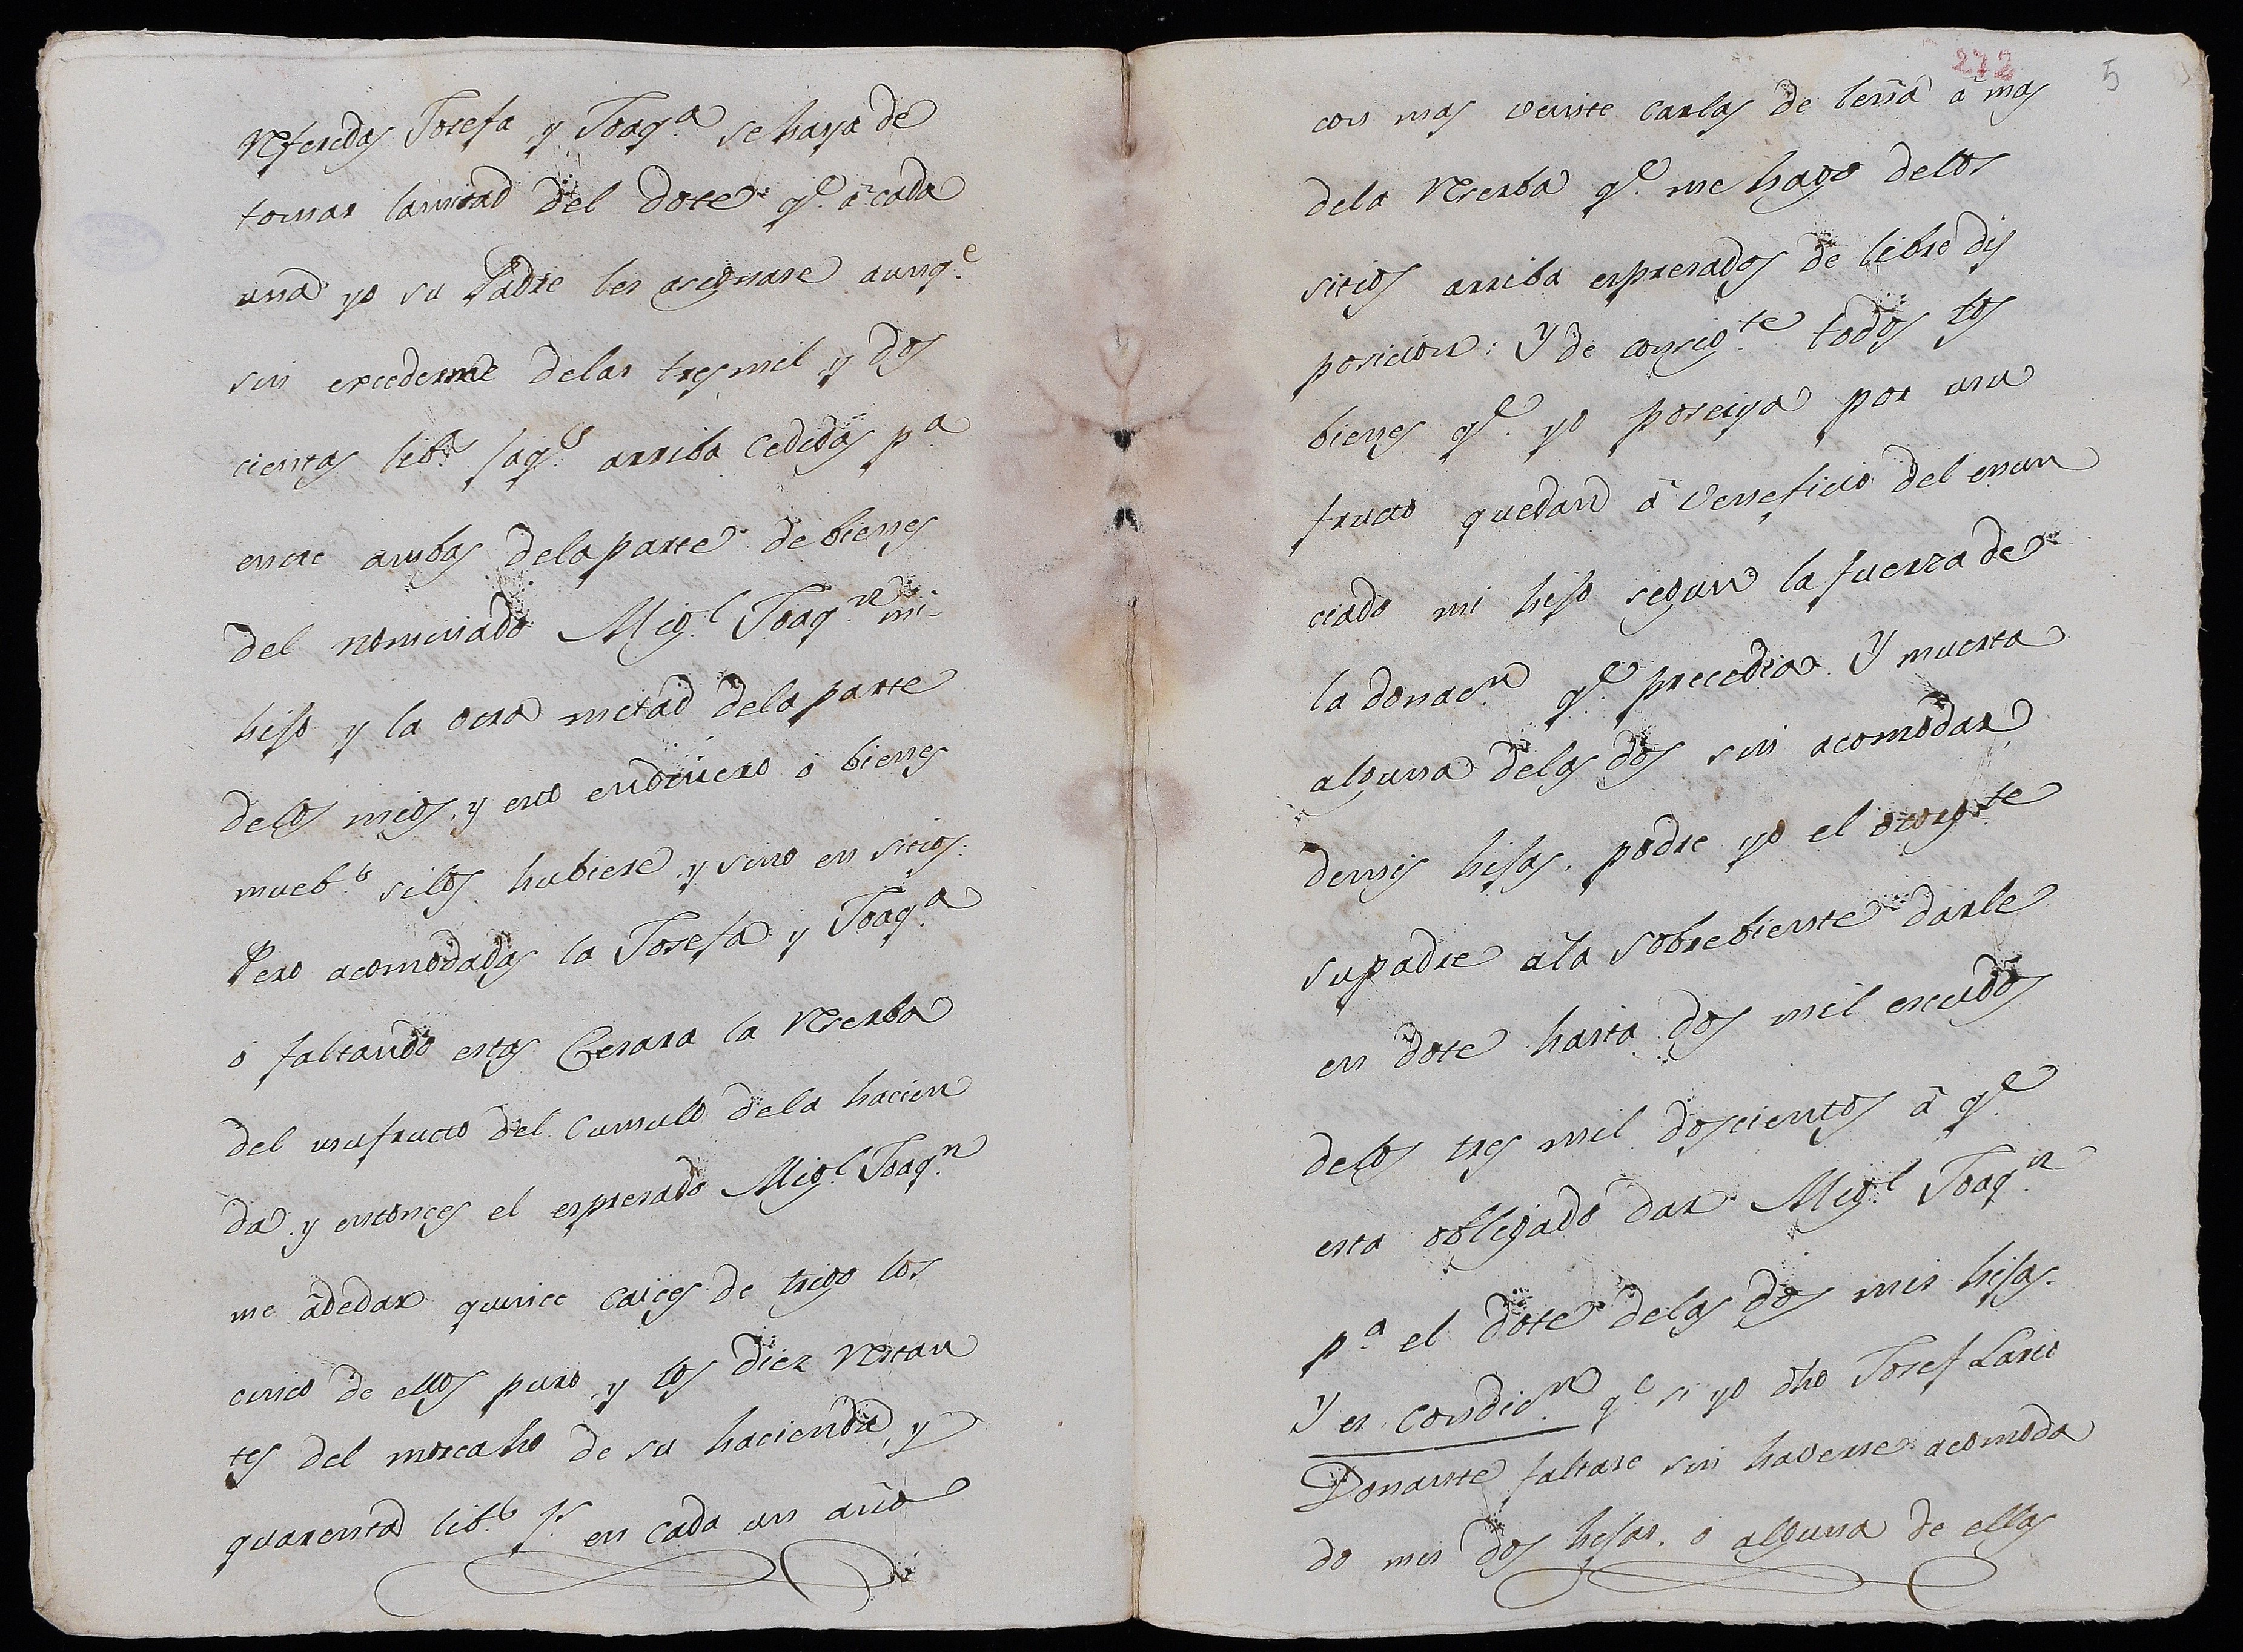 Referidas Josefa y Joaqª se haya de
tomar la mitad del dote qe à cada
una yo su Padre les asignare aunqe
sin excederme delas tres mil y dos
cientas libs Jaqs arriba cedidas pª
entre ambas dela parte de bienes
del nominado Migl Joaqn mi
hijo y la otra metad dela parte
delos mios, y esto en dinero ò bienes
muebs silos hubiere y sino en sitios.
Pero acomodadas la Josefa y Joaqª
ò faltando estas Cesara la Reserba
del usufructo del Cumulo dela hacien
da y entonces el espresado Migl Joaqn
me àdedar quince caices de trigo los
cinco de ellos puro y los diez restan
tes del morcacho de su hacienda, y
quarenta libs Js en cada un año
272 5
con mas veinte cargas de leña à mas
dela Reserba qe me hago delos
sitios arriba espresados de libre dis
posicion: Y de consigte todos los
bienes qe yo poseiya por usu
fructo quedan à veneficio del enun
ciado mi hijo segun la fuerza de
la donacn qe precedia Y muerta
alguna delas dos sin acomodar
demis hijas, podre yo el otorgte
su padre àla sobrebiente darle
en dote hasta dos mil escudos
delos tres mil doscientos à qe
esta obligado dar Migl Joaqn
pª el dote delas dos mis hijas.
Y es condicn qe si yo dho Josef Lario
Donante faltare sin haverse acomoda
do mis dos hijas, ò alguna de ellas